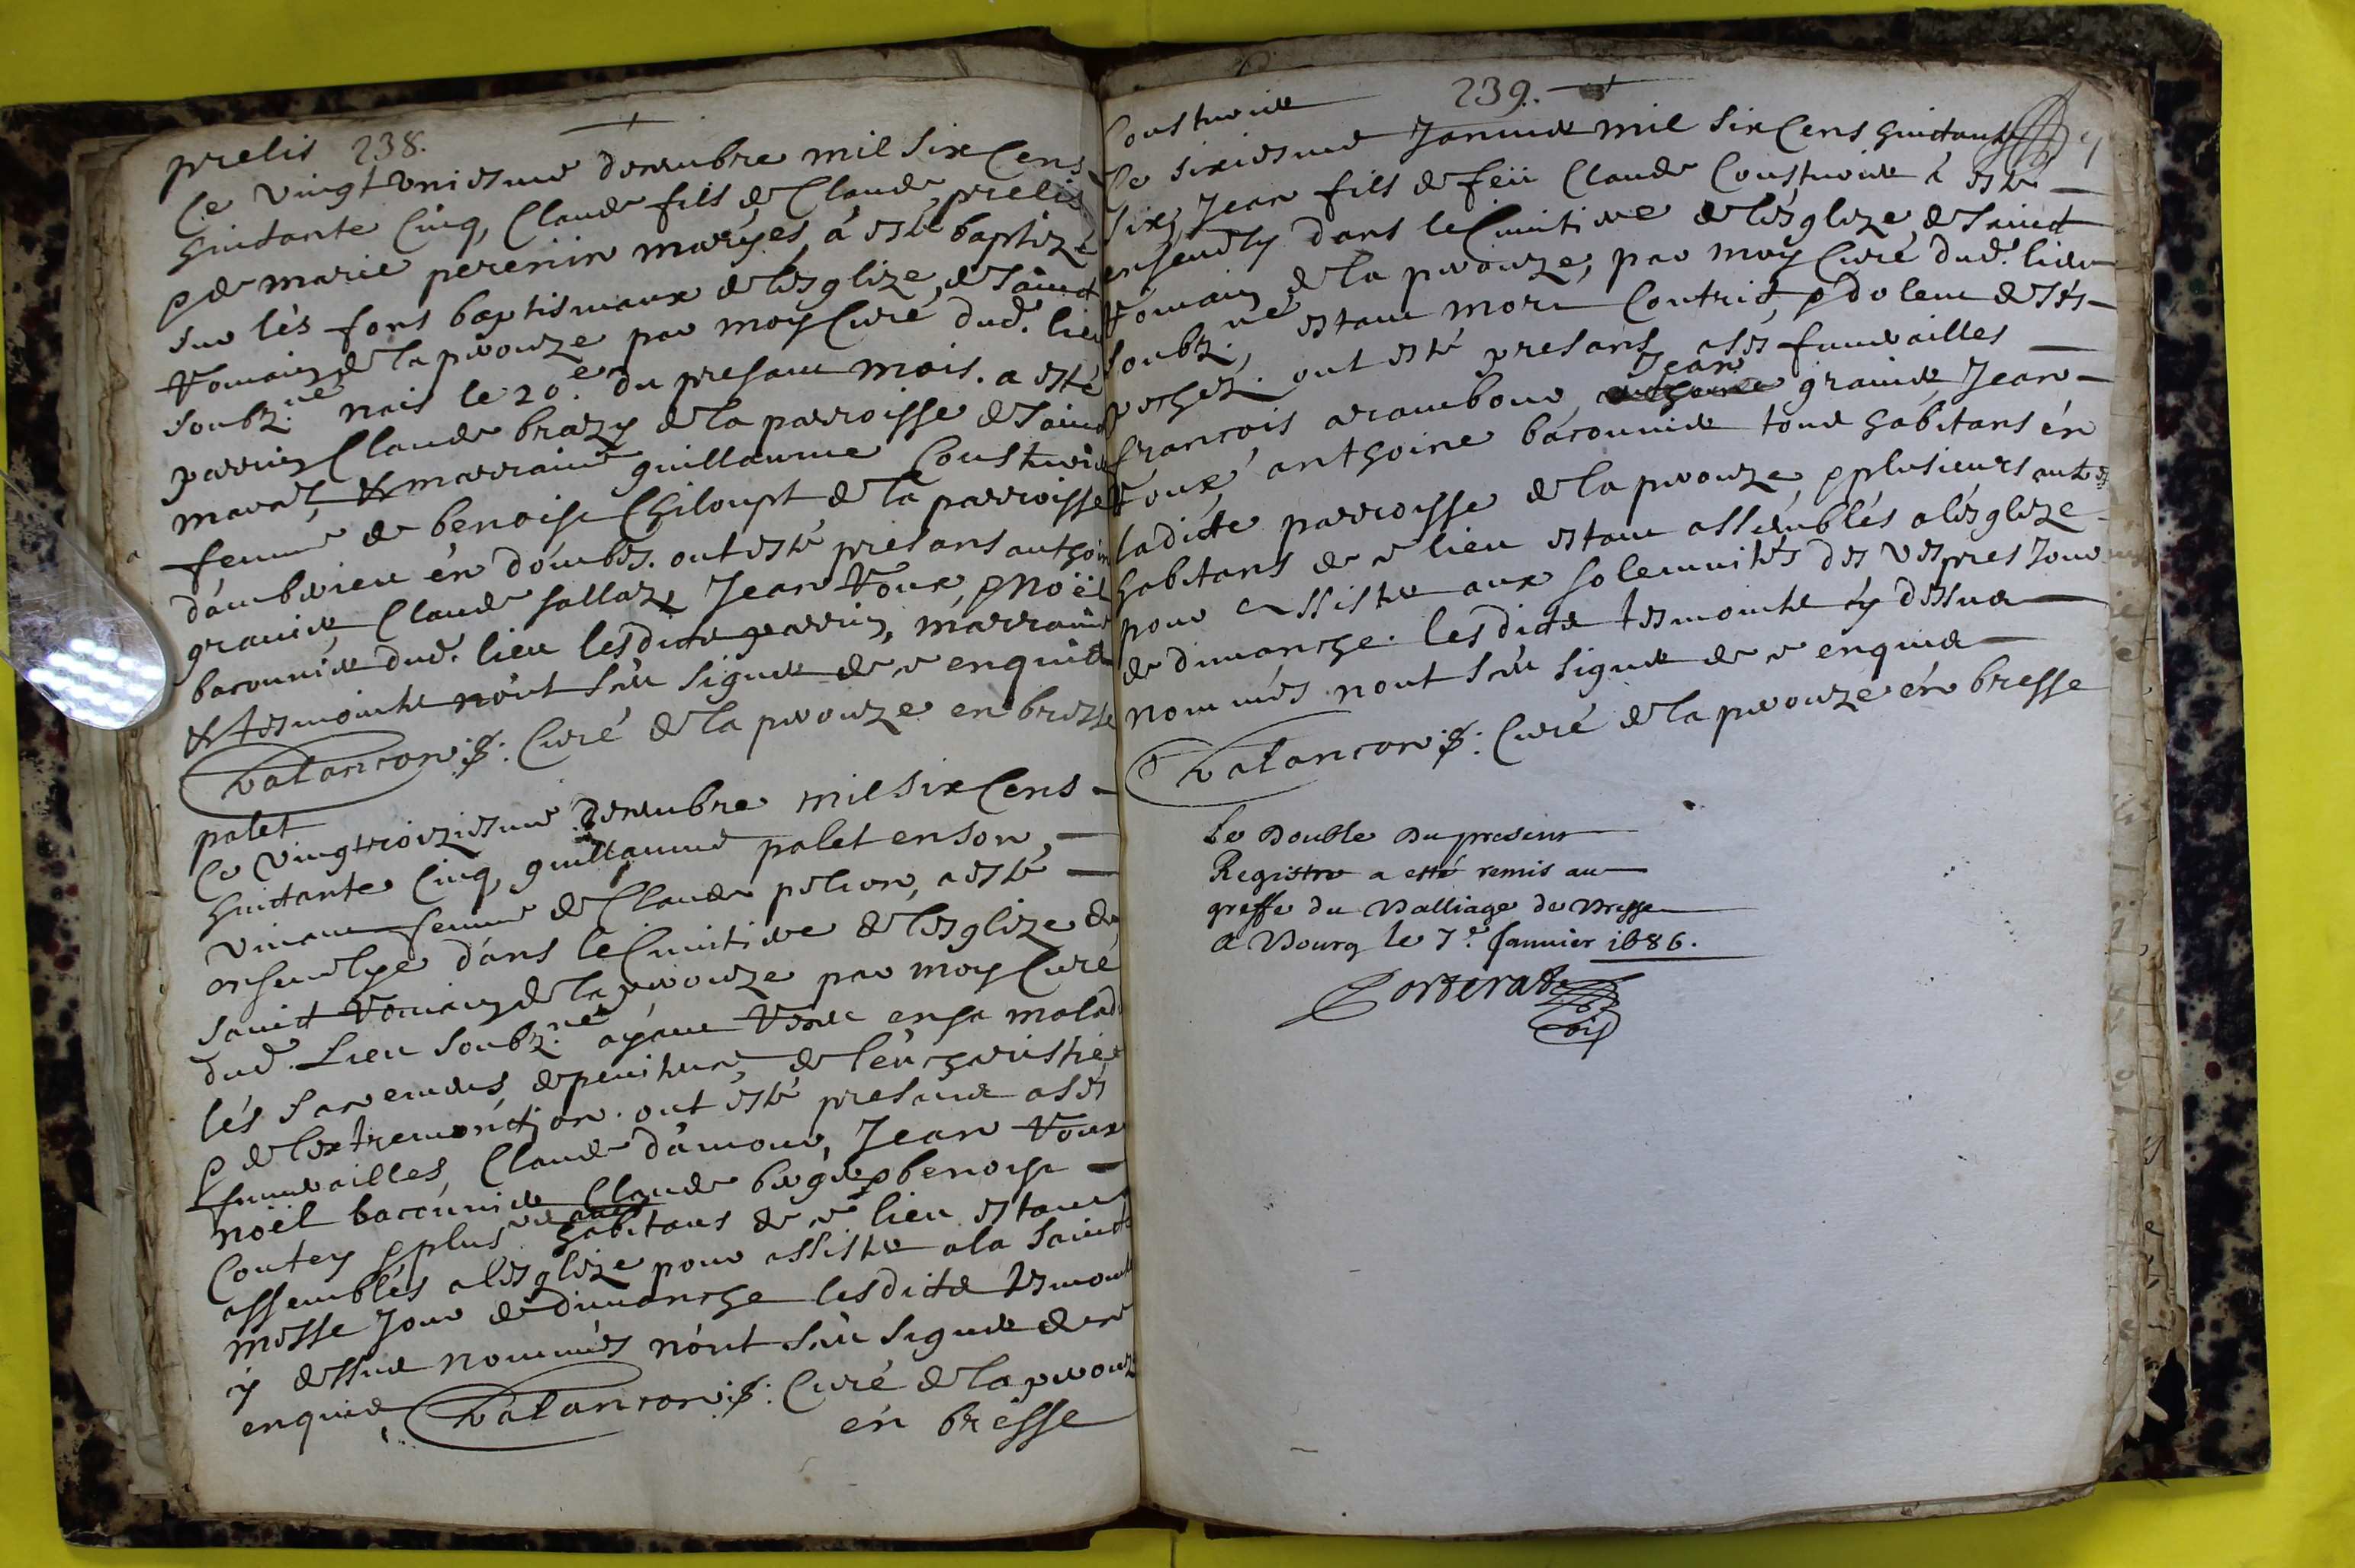 prelis 238.
Ce vingt uniesme decembre mil six Cens
huictante Cinq, Claude fils de Claude prelis
& de marie perenin maryes, à esté baptizé
sur lés fons baptismaux de lésglize de sainct
Romain de la perouze par moy Curé dud. lieu
soubz.né nais le 20.e du presant mois. a esté
parrin Claude brazy de la parroisse de sainct
& marraine guillaume Cousturier
femme de benoist Chiloupt de la parroisse
dámberieu én dómbes. ont esté presans anthoine
granier, Claude sallazy Jean Roux, & Noël
baconnier dud. lieu lesdicts parrin, márraine
& tesmoints nónt sceu signer de ce enquis
Valancon p. Curé de la perouze en bresse
palet
Ce vingtroiziesme decembre mil six Cens
huictante Cinq, guillaume palet en son
vivant femme de Claude pelion, a esté
ensevelye dáns le Cimitiere de lésglize de
sainct Romain de la perouze par moy Curé
dud. Lieu soubz.né ayant receu en sa maladie
lés sacremens de penitence, de léucharistie
& de léxtremonction. ont ésté presants a sés
funerailles, Claude dámour, Jean Roux
noël baconnier Claude & benoist
Coutey & plus.rs aultres habitans de ce lieu estant
assemblés a lésglize pour assister a la saincte
messe Jour de dimanche lesdicts tesmoints
cy dessus nommés nónt sceu signer de ce
enquis, Valancon p. Curé de la perouze
én bresse
239.
Cousturier
Ce sixiesme Janvier mil six Cens huictante
six, Jean fils de feü Claude Cousturier à esté
ensevely dans le Cimitiere de lésglize de sainct
Romain de la perouze, par moy Curé dud. lieu
soubz.né, estant mort Contrit, & dolent de sés
pechez. ont esté presans a sés funerailles
françois arambour Jean granier Jean
Roux, anthoine báconnier tous habitans én
ladicte parroisse de la perouze, & plusieurs autres
habitans de ce lieu estant assemblés a lésglize
pour assister aux solemnités des vespres Jour
de dimanche. lesdicts tesmoints cy dessus
nommés nont sceu signer de ce enquis
Valancon p. Curé de la perouze én bresse
Le Double Du present
Registre a etté remis au
greffe du Balliage de Bresse
A Bourg le 7.e Janvier 1686.